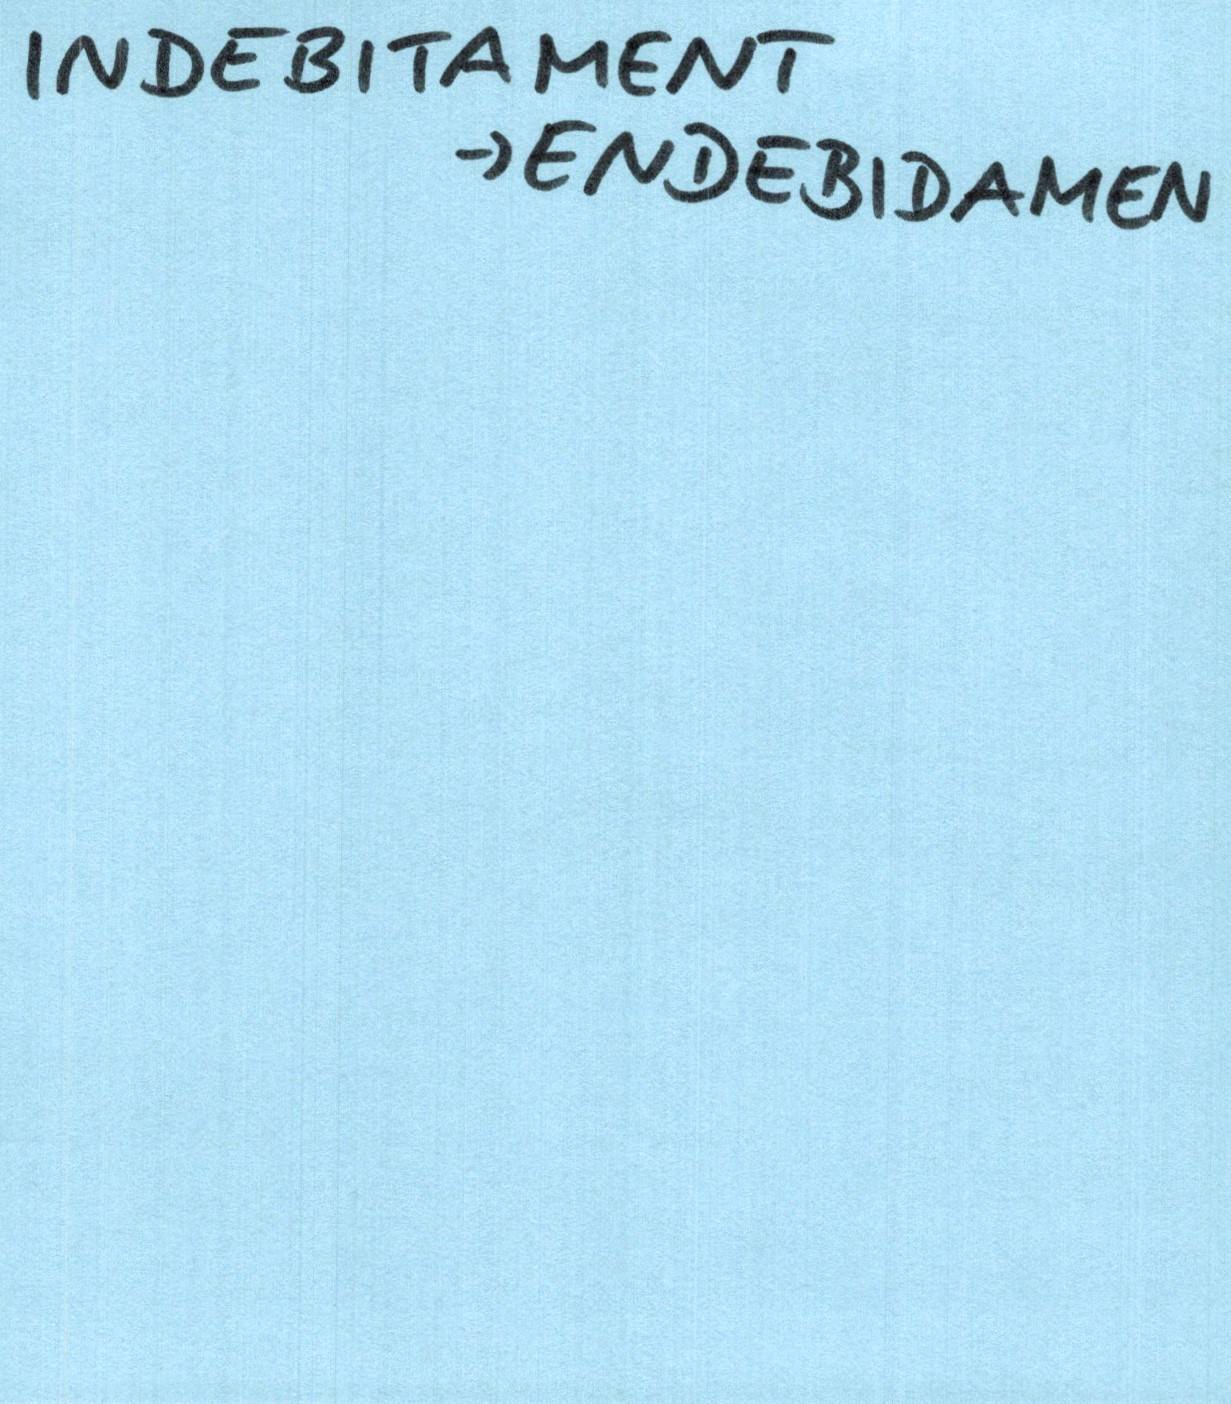 INDEBITAMENT
→ENDEBIDAMEN